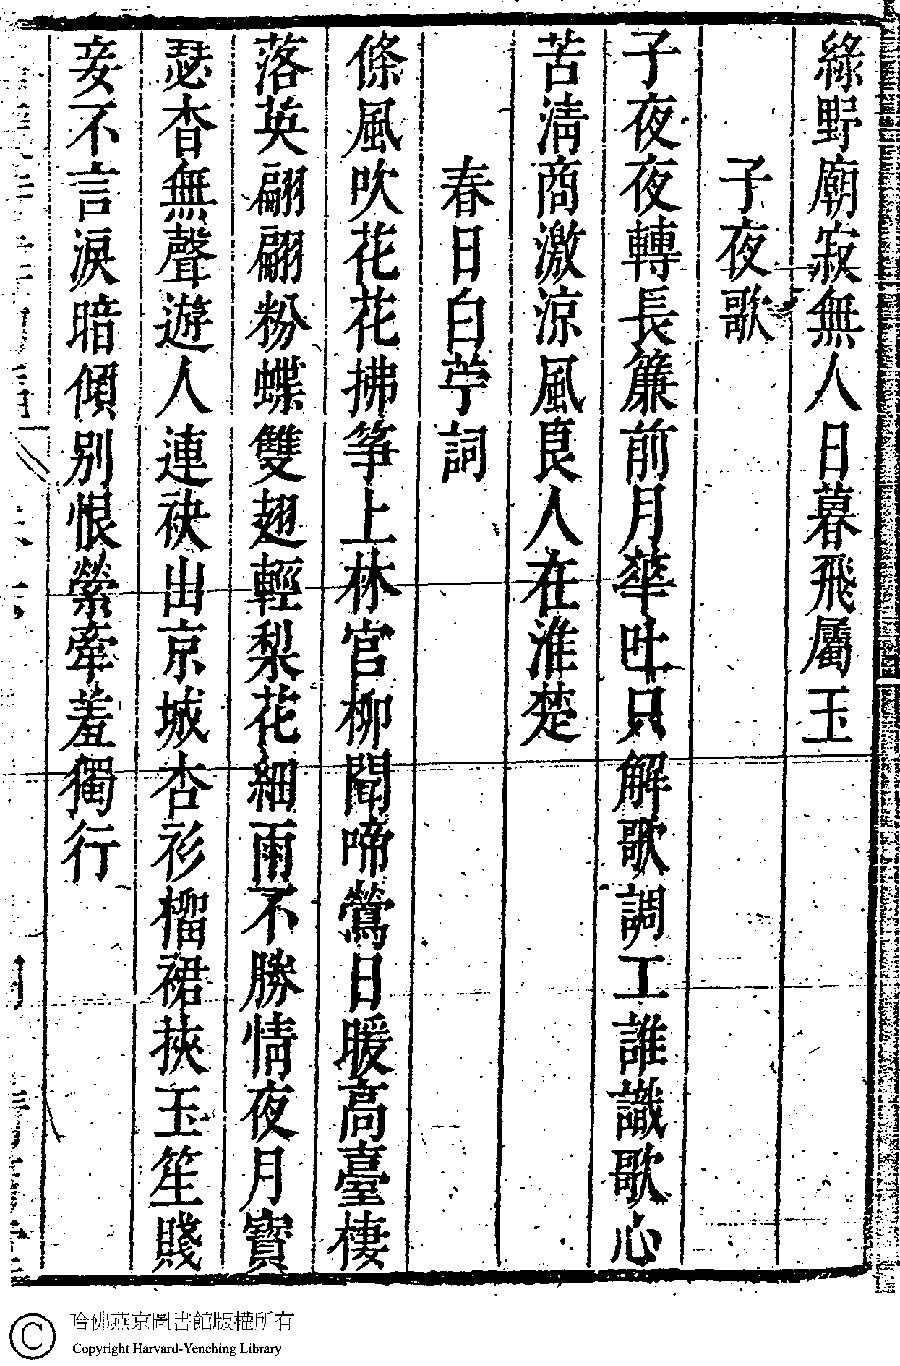 綠野廟寂無人日暮飛屬玉
子夜歌
子夜夜轉長簾前月華吐只解歌調工誰識歌心
苦清商激涼風良人在淮楚
春日白苧詞
條風吹花花拂筝上林官柳聞啼鶯日暖高臺棲
落英翩翩粉蝶雙翅輕梨花細雨不勝情夜月寳
瑟杳無聲遊人連袂出京城杏衫橊裙挾玉笙賤
妾不言淚暗傾別恨縈牽羞獨行
哈佛燕京圖書館版權所有
Copyright Harvard-Yenching Library